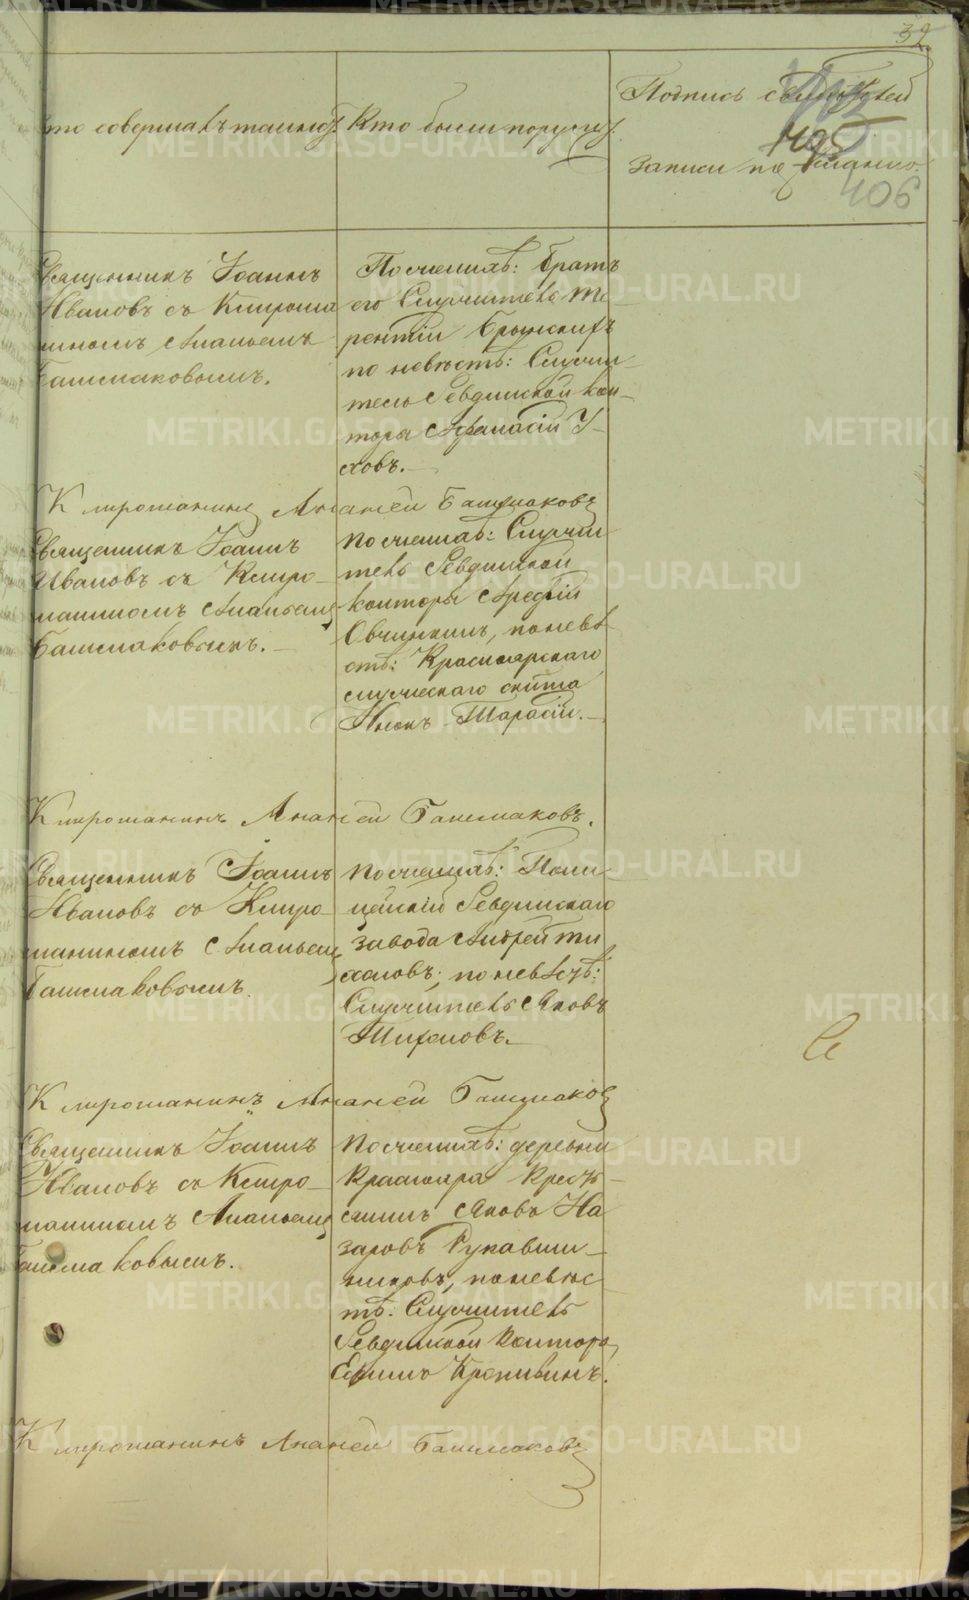 32
кто совершалъ таинст.
Кто были поручит.
Подпись свидѣтелей
записи по желанію.
405
406
Священникъ Іоаннъ
Ивановъ съ Клироша
ниномъ Ананьемъ
Башмаковымъ.
По женихѣ: братъ
его Служитель Те
рентій
по невѣстѣ: Служи
тель Ревдинской кон
торы Афанасій У
ховъ.
Клирошанинъ Ананей Башмаковъ
Священникъ Іоаннъ
Ивановъ съ Клиро
шаниномъ Ананьемъ
Башмаковымъ.
По женихѣ: Служи
тель Ревдинской
конторы Арефій
Овчинкинъ, по невѣ
стѣ: Красноярскаго
скита
Инокъ Тарасій.
Клирошанинъ Ананей Башмаковъ.
Священникъ Іоаннъ
Ивановъ съ Клиро
шаниномъ Ананьемъ
Башмаковымъ
По женихѣ: Поли
цейскій Ревдинскаго
завода Андрей Ти
хановъ; по невѣстѣ:
Служитель Яковъ
Клирошанинъ Ананей Башмаковъ
Священникъ Іоаннъ
Ивановъ съ Клиро
шаниномъ Ананьемъ
Башмаковымъ.
По женихѣ: деревни
Краснояра Кресть
янинъ Яковъ На
заровъ Рукавиш
никовъ, по невѣс
тѣ: Служитель
Ревдинской Конторы
Ефимъ Крапивинъ.
Клирошанинъ Ананей Башмаковъ
METRIKI.GASO-URAL.RU